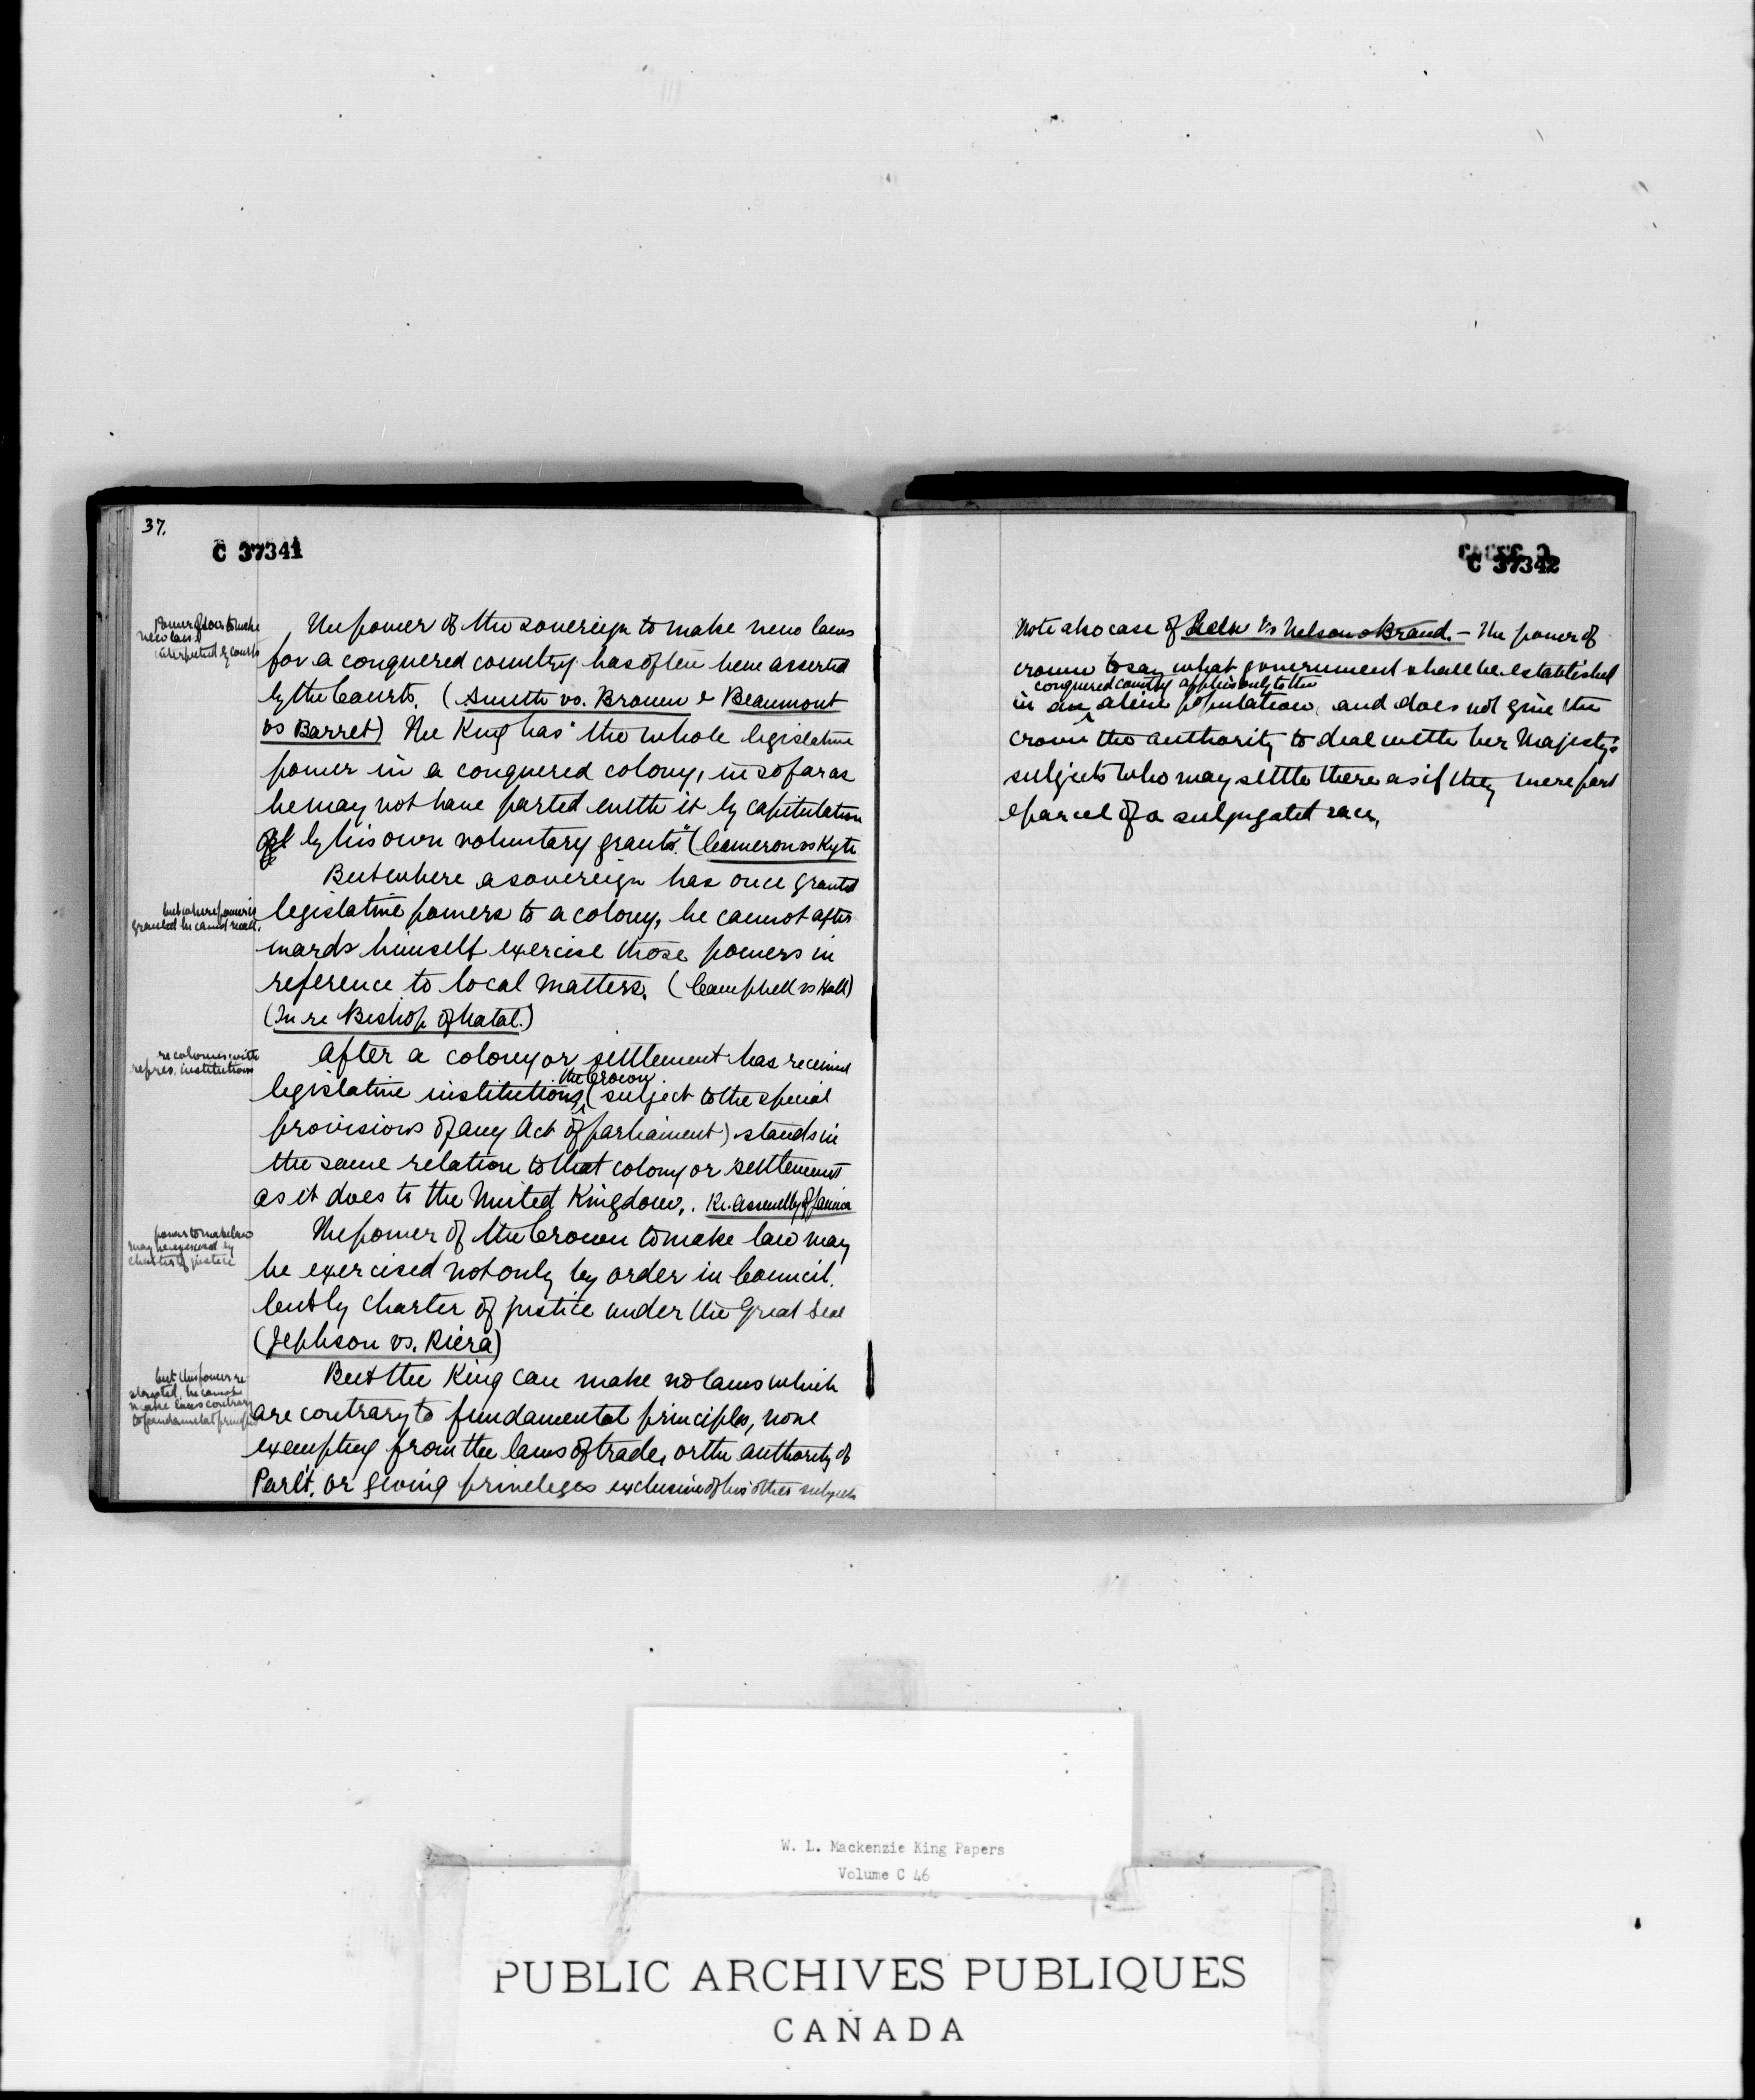 37.
C 37341
Power of sov. to make
new laws
interpreted by courts
The power of the sovereign to make new laws
for a conquered country has often been asserted
by the Courts. (Smith vs. Brown & Beaumont
vs Barret) The King has "the whole legislative
power in a conquered colony, in so far as
he may not have parted with it by capitulation
by his own voluntary grants." (Cameron vs Kyte
But where a sovereign has once granted
but where power is
granted he cannot recall.
legislative powers to a colony, he cannot after
wards himself exercise those powers in
reference to local matters. (Campbell vs Hall)
(In re Bishop of Natal.)
re colonies with
repres. institutions
After a colony or settlement has received
the Crown
legislative institutions, (subject to the special
provisions of any Act of parliament) stands in
the same relation to that colony or settlement
as it does to the United Kingdom. Re. Assembly of Jamica
power to make law
may be exercised by
charter of justice
The power of the Crown to make law may
be exercised not only by order in Council.
but by charter of justice under the Great Seal
(Jephson vs. Riera)
but this power re
stricted, he cannot
make laws contrary
to fundamental principles
But the King can make no laws which
are contrary to fundamental principles, none
exempting from the laws of trade, or the authority of
Parl't. or giving privileges exclusive of his other subjects
C 37342
Note also case of vs Nelson & Brand. – The power of
crown to say what government shall be established
conquered country applies only to the
in an alien population, and does not give the
crown the authority to deal with her Majesty's
subjects who may settle there as if they were part
& parcel of a subjugated race.
W. L. Mackenzie King Papers
Volume C 46
PUBLIC ARCHIVES PUBLIQUES
CANADA